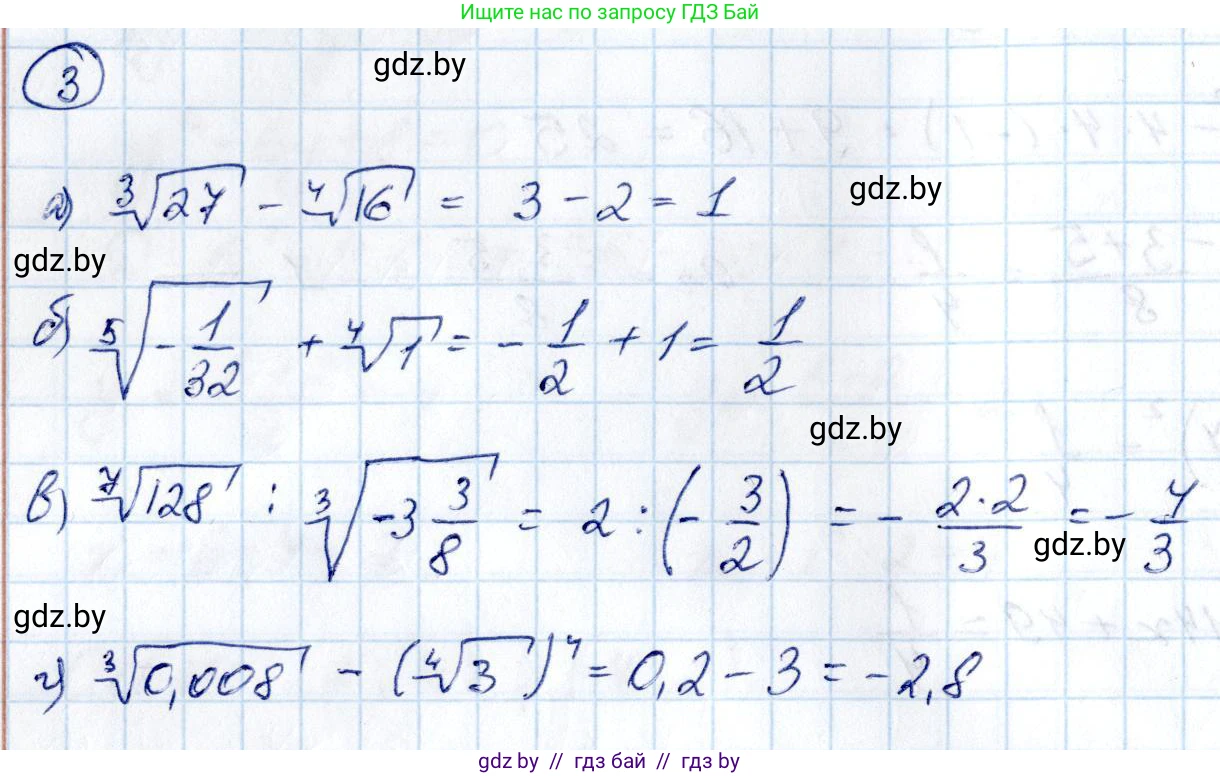 Ищите нас по запросу ГДЗ Бай
3
gdz.by
а) ∛27 - ∜16 = 3 - 2 = 1
gdz.by
gdz.by
б) ⁵√(-1/32) + ∜1 = - 1/2 + 1 = 1/2
gdz.by
в) ⁷√128 : ∛(-3 3/8) = 2 : (- 3/2) = - 2·2/3 = - 4/3
gdz.by
gdz.by
г) ∛0,008 - (∜3)⁴ = 0,2 - 3 = -2,8
gdz.by // гдз бай // гдз.by